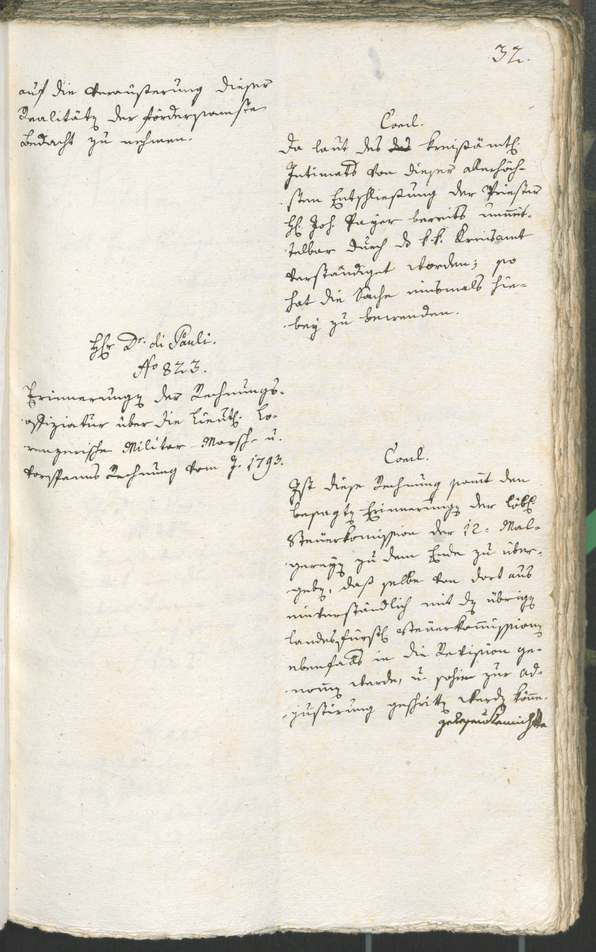 32.
auf die Veräußerung dieser
Realitäty der fördersamste
Bedacht zu nehmen.
Concl.
Da laut des kreisämtl.
Intimats von dieser allerhöch-
sten Entschließung der Priester
H. Joh. Payer bereits unmit-
telbar durch d k. k. Kreisamt
verständiget worden; so
hat die Sache nunmals hie-
bey zu bewenden.
Hr. Dr. di Pauli.
No 823.
Erinnerung der Rechnungs-
offiziatur über die Lieut. Lo-
renzerische Militar-Marsch- u.
Vorspanns Rechnung vom J. 1793.
Concl.
Ist diese Rechnung samt den
besagten Erinnerungen der löbl.
Steuerkomission der 12. Mal-
greyen zu dem Ende zu über-
geben, daß selbe von dort aus
einverständlich mit den übrigen
landesfürstl. Steuerkommissionen
ebenfalls in die Revision ge-
nomen werde, u. sohin zur ad-
justirung geschritten werden könne.